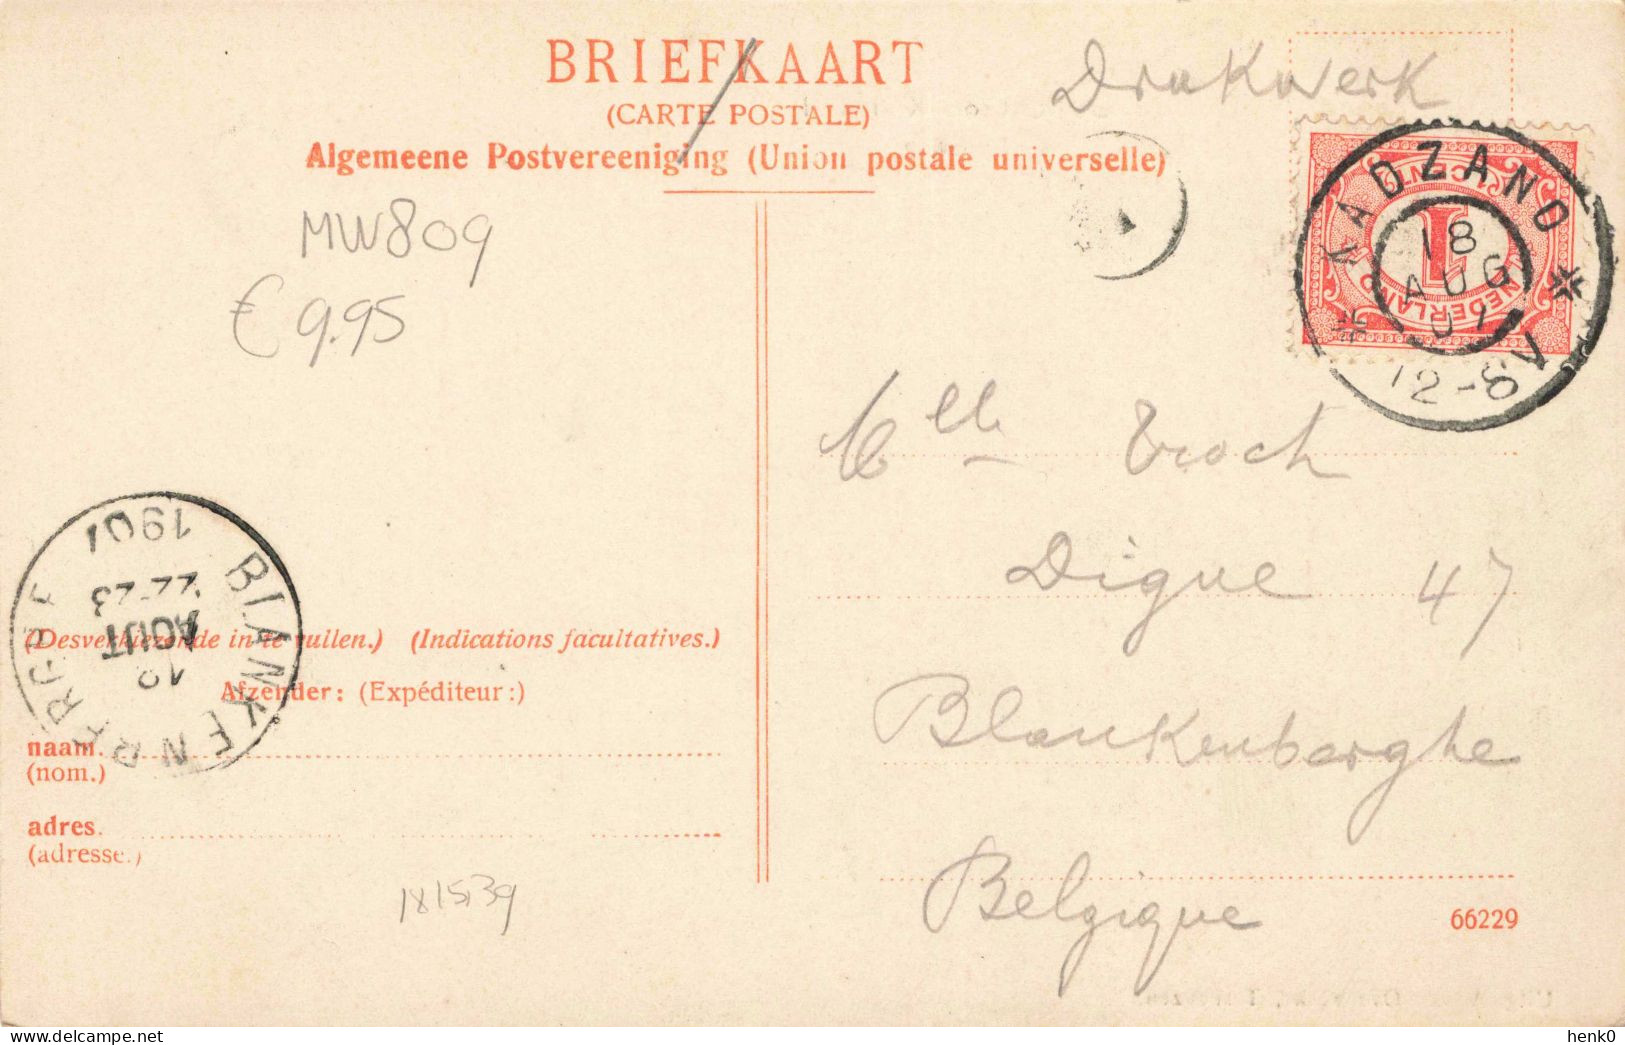 BRIEFKAART
(CARTE POSTALE)
Algemeene Postvereeniging (Union postale universelle)
Drukwerk
MW809
€ 9.95
KADZAND
18
AUG
07
12-8V
1
CENT
NEDERLAND
Melle Troch
Digue 47
Blankenberghe
Belgique
BLANKENBERGHE
AOUT
22-23
1907
(Desverkiezende in te vullen.) (Indications facultatives.)
Afzender: (Expéditeur:)
naam.
(nom.)
adres.
(adresse.)
181539
66229
henk0